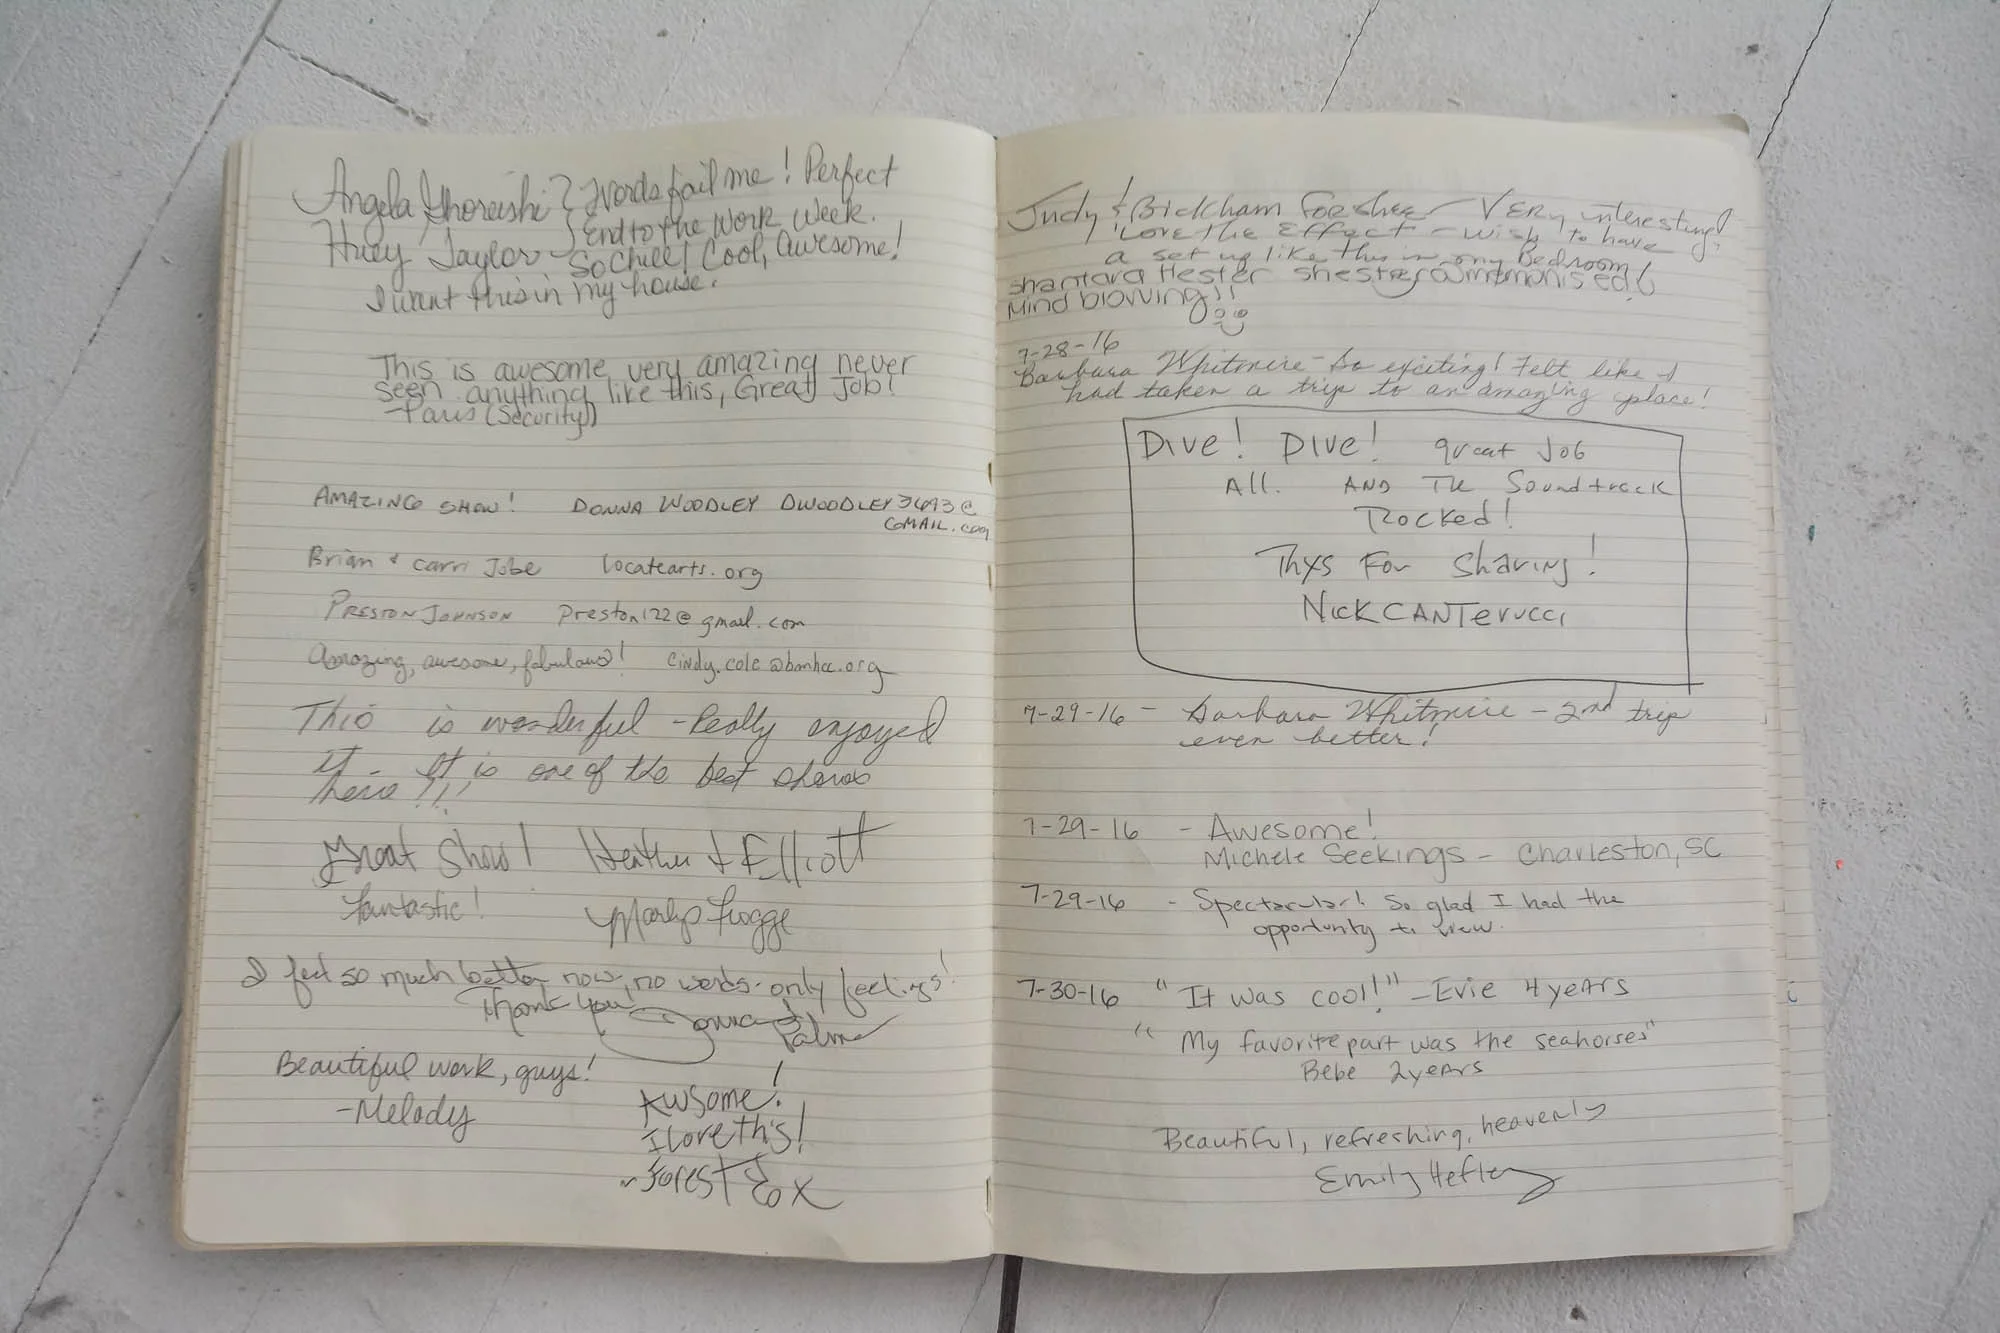 Angela Ghoreishi } Words fail me! Perfect
Huey Taylor } End to the Work Week.
So Chill! Cool, Awesome!
I want this in my house.
This is awesome very amazing never
seen anything like this, Great Job!
-Paris (Security)
AMAZING SHOW! DONNA WOODLEY DWOODLEY3693@
GMAIL.COM
Brian & Carri Jobe locatearts.org
PRESTON JOHNSON Preston122@gmail.com
Amazing, awesome, fabulous! Cindy.cole@bonhcc.org
This is wonderful - Really enjoyed
it - It is one of the best shows
here!!!
Great Show! Heather & Elliott
Fantastic! Marlys Frogge
I feel so much better now, no words - only feelings!
Thank you Palmer
Beautiful work, guys!
-Melody
Awsome!
I love this!
~Forest Fox
Judy & Bickham Forshee VERY interesting!
Love the Effect - wish to have
a set up like this in my Bedroom!
Shantara Hester
Mind blowing!!
7-28-16
Barbara Whitmire - So exciting! Felt like I
had taken a trip to an amazing place!
Dive! Dive! great Job
All. AND The Soundtrack
Rocked!
Thxs For Sharing!
Nick CANTerucci
7-29-16 - Barbara Whitmire - 2nd trip
even better!
7-29-16 - Awesome!
Michele Seekings - Charleston, SC
7-29-16 - Spectacular! So glad I had the
opportunity to view.
7-30-16 "It was cool!" - Evie 4 years
"My favorite part was the seahorses"
Bebe 2 years
Beautiful, refreshing, heavenly
Emily Hefley